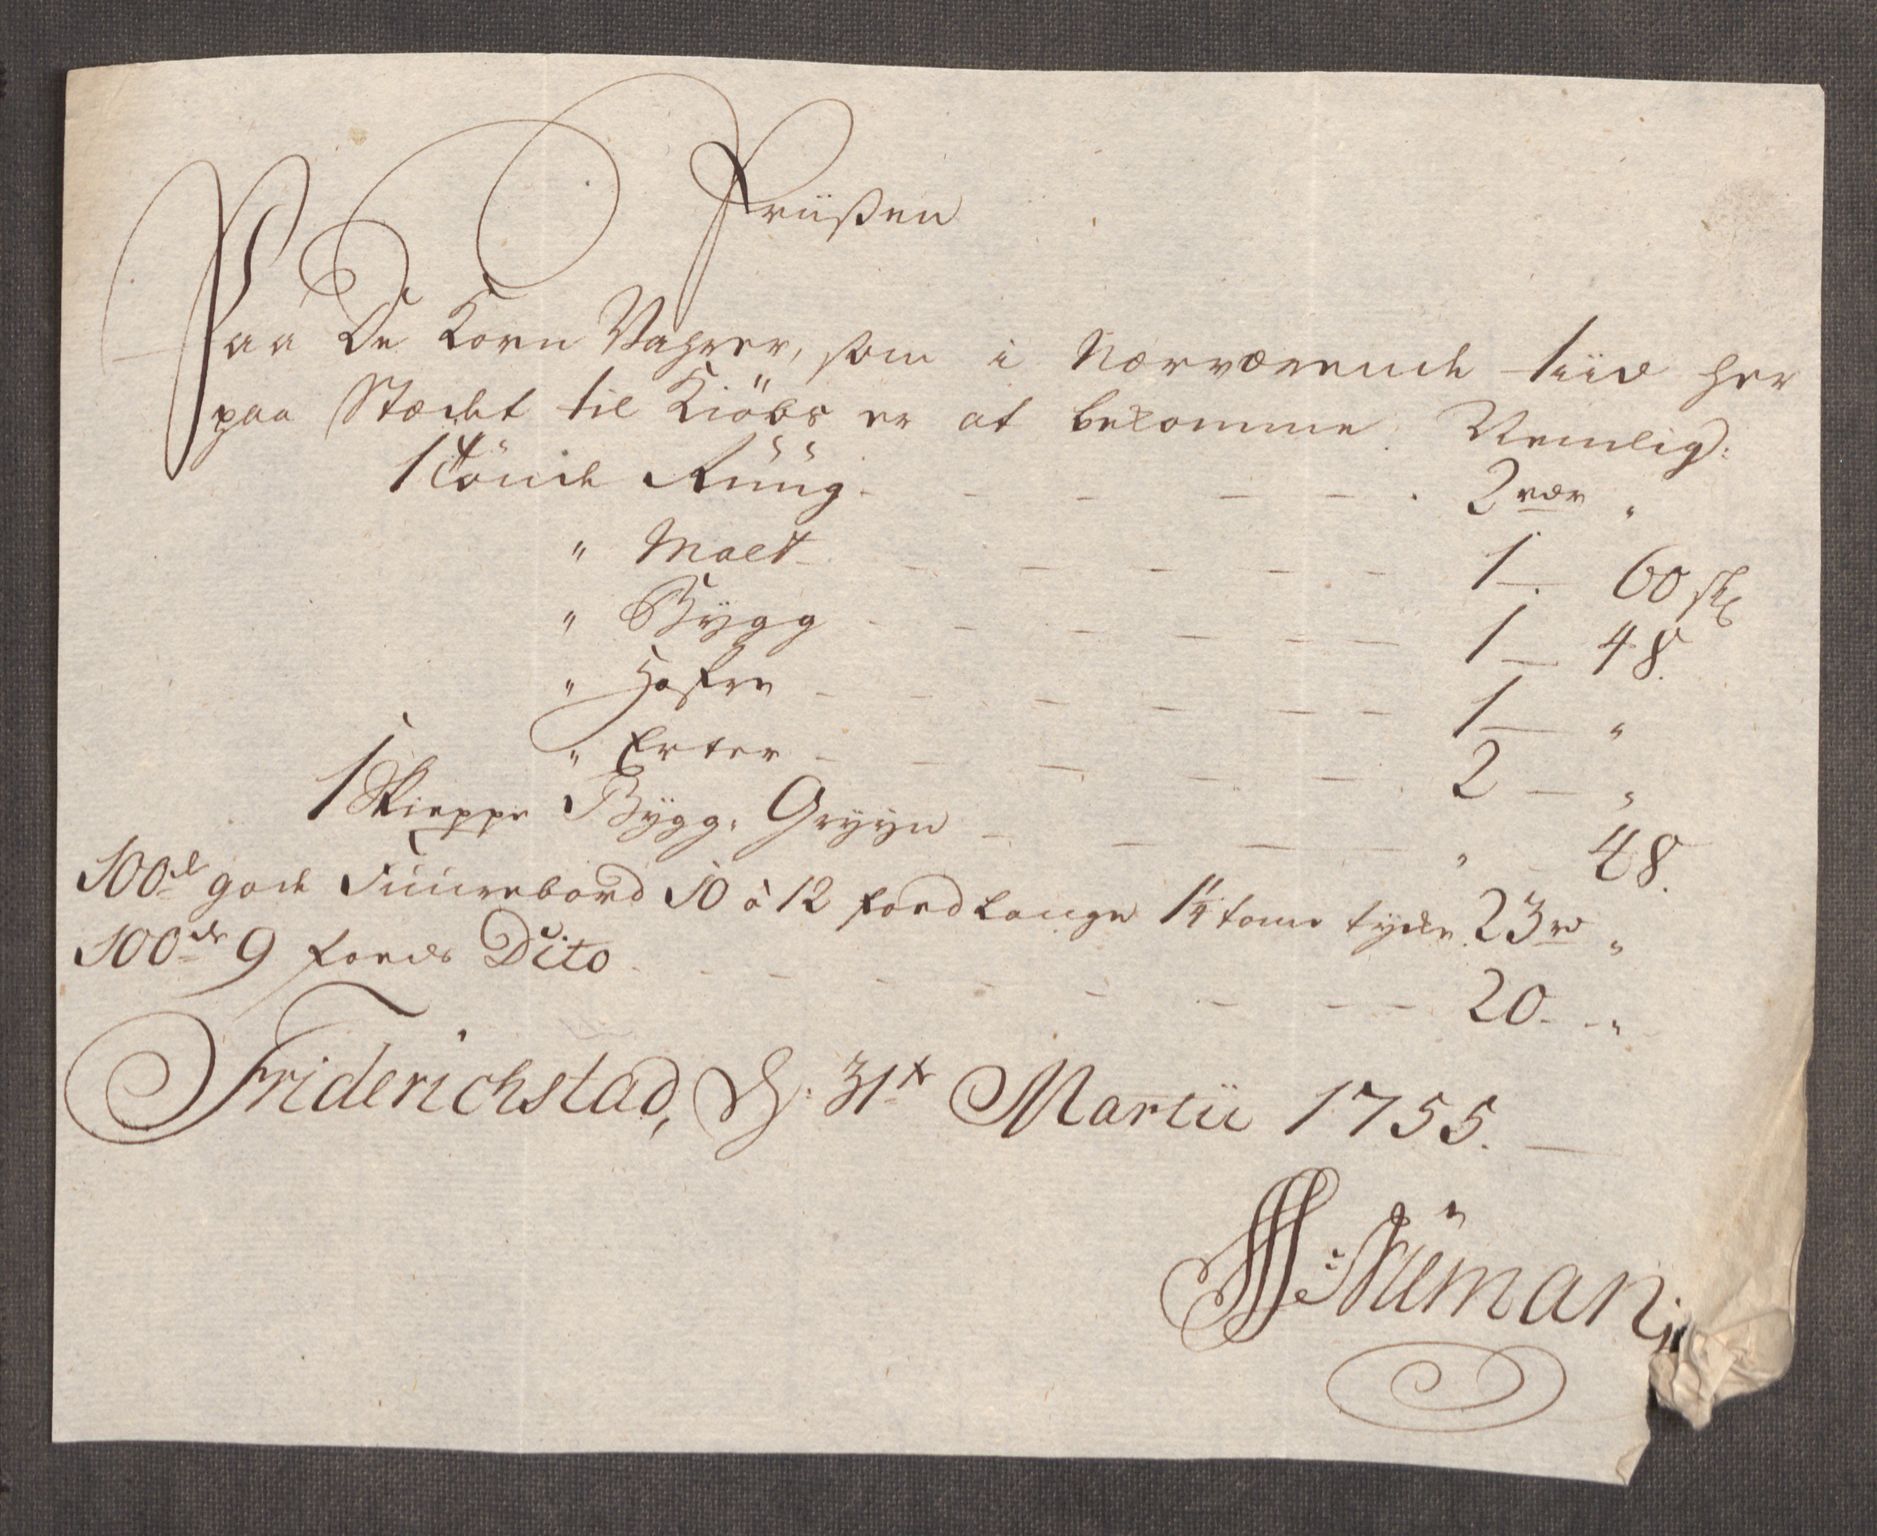 Priißen
Paa De Korn Vahrer, som i Nærværende tiid her
paa Stædet til Kiöbs er at bekomme. Nemlig:
1 tönde Rüüg - - - - - 2 rdr "
" Malt - - - - - 1 - 60 sk
" Bÿgg - - - - - 1 - 48.
" Hafre - - - - - 1 - "
" Erter - - - - - 2 - "
1 Skieppe Bÿgg: Grÿÿn - - - - " - 48.
100de gode Fuurebord 10 à 12 foed lange 1¼ tome tycke 23 rd "
100de 9 foeds Dito - - - - - - - 20 - "
Friderichstad, d: 31te Martii 1755.
Nüman